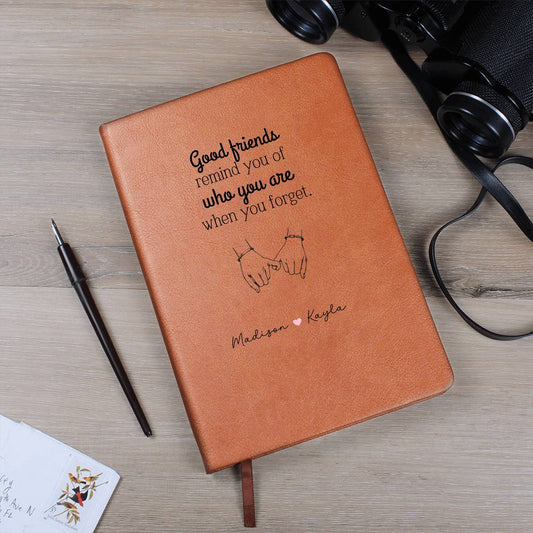 Good friends
remind you of
who you are
when you forget.
Madison Kayla